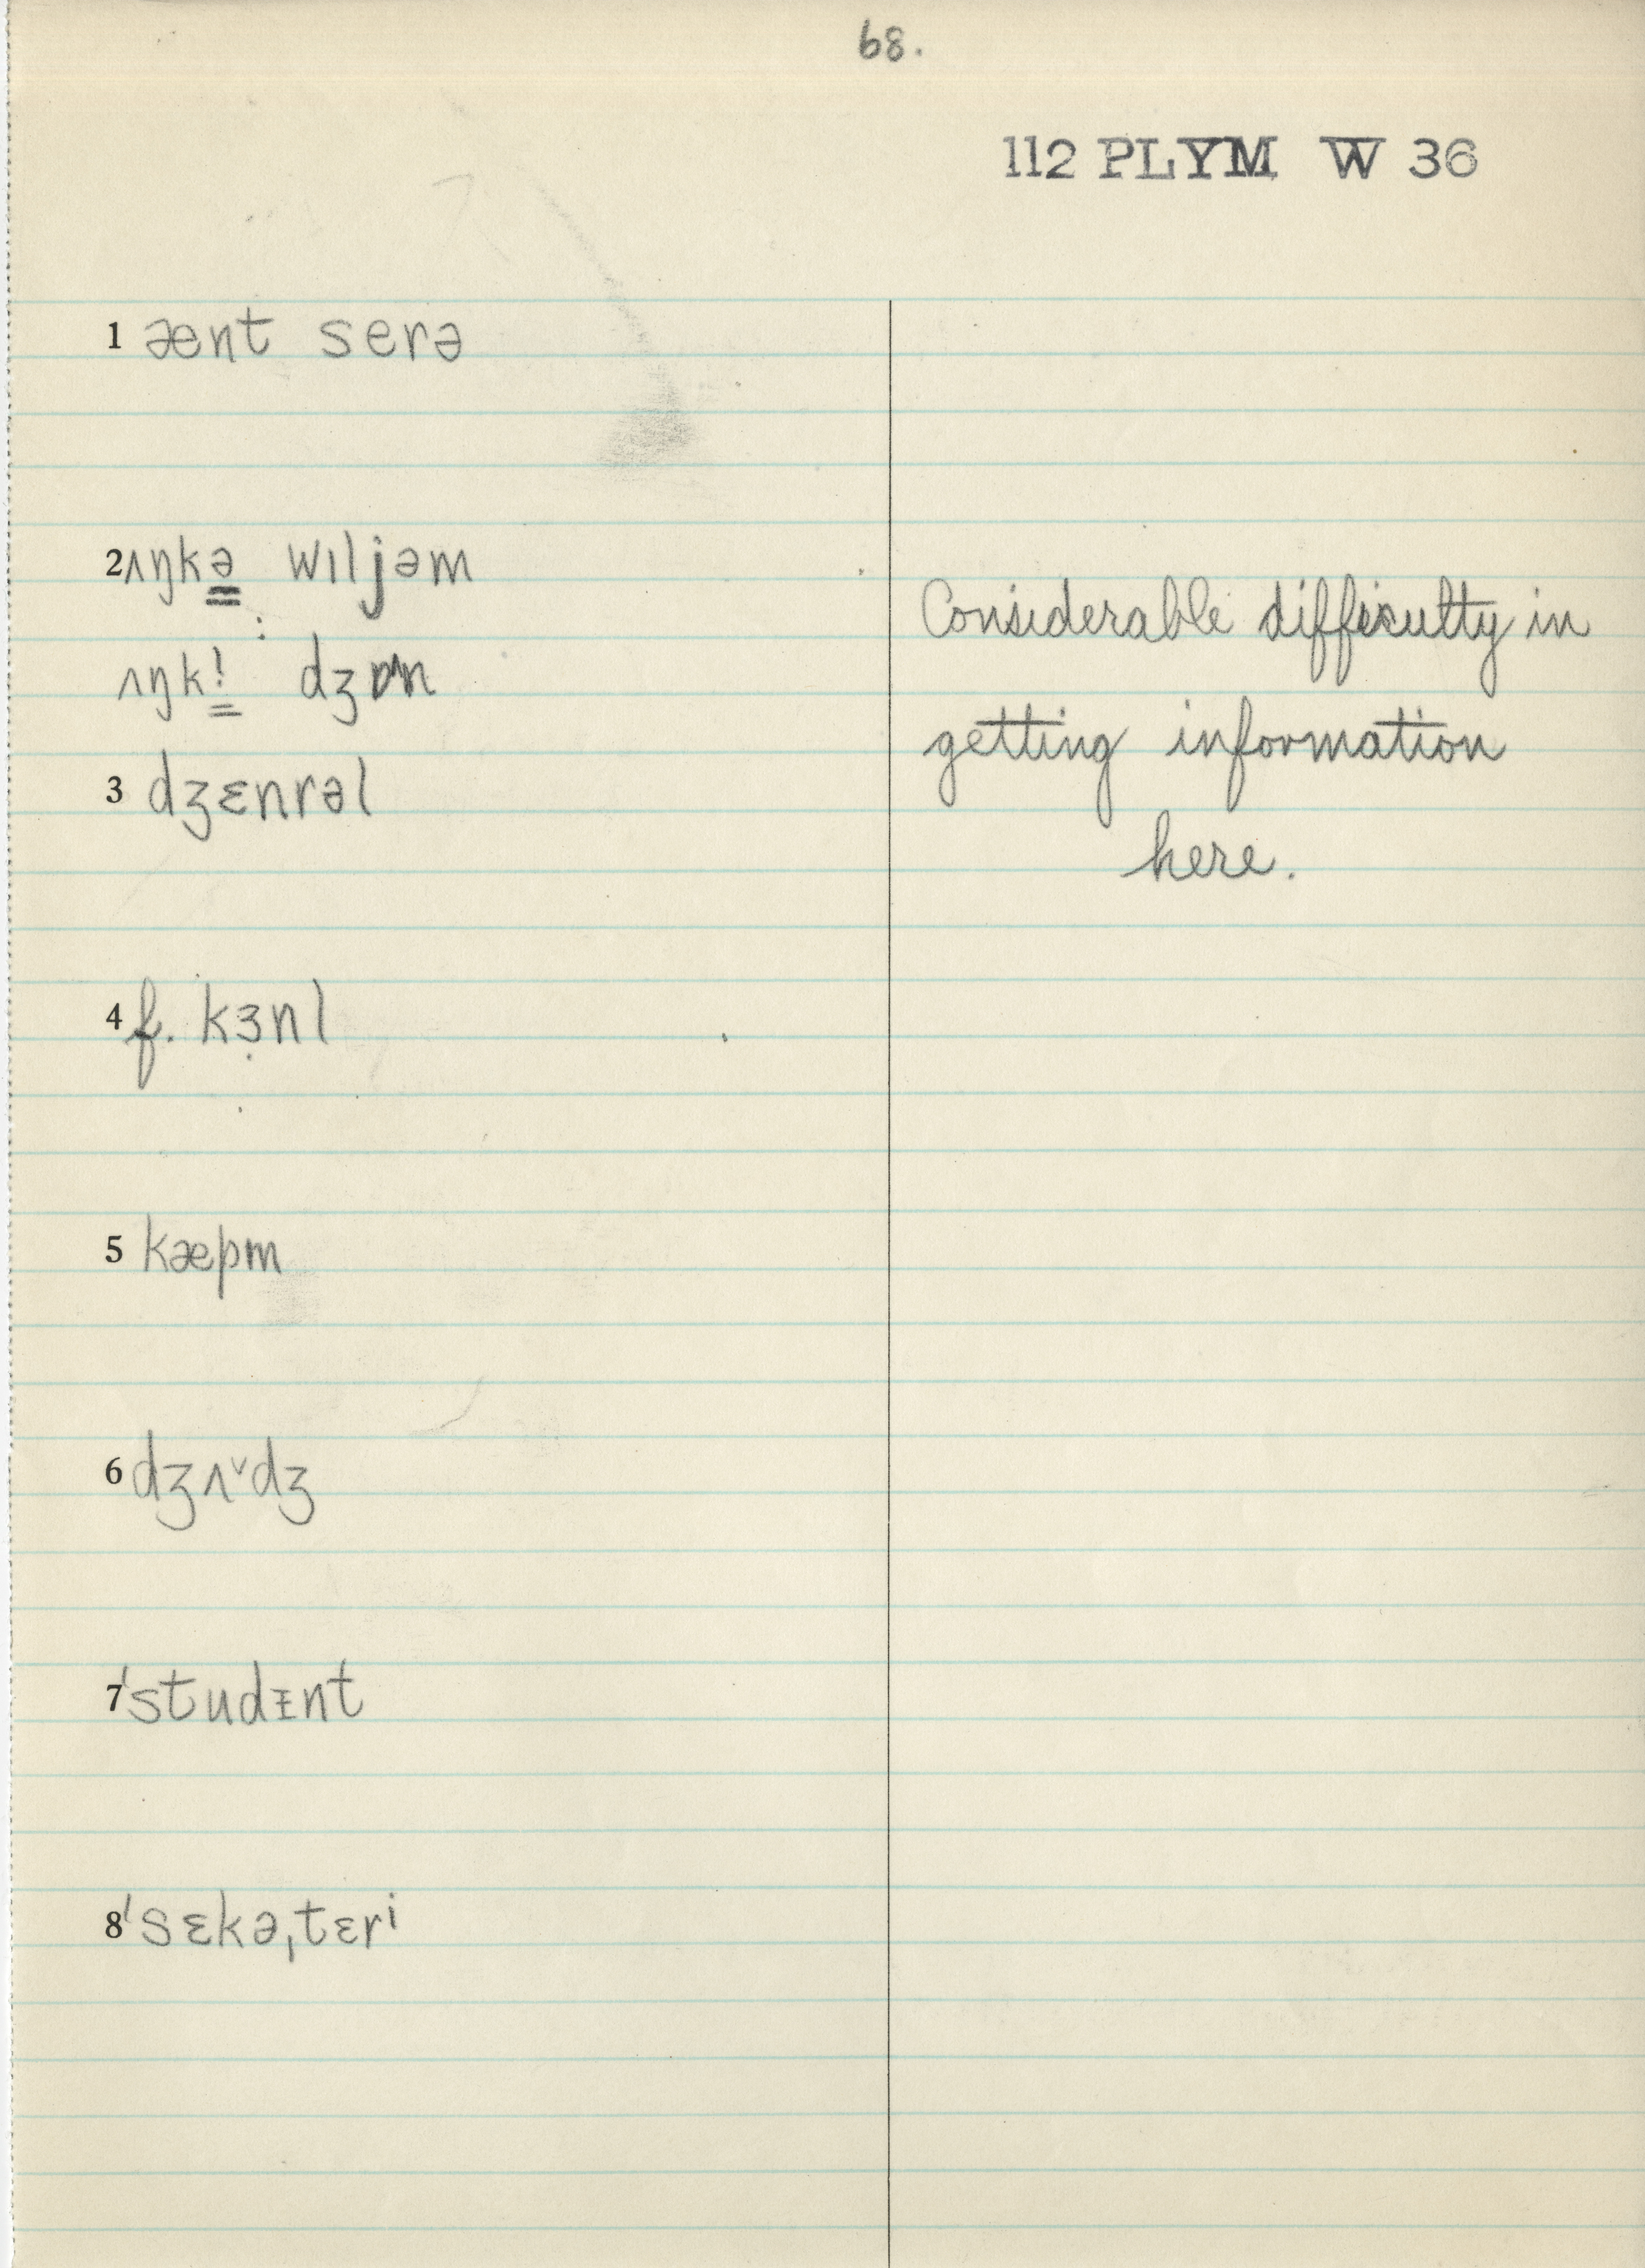 68.
112 PLYM W 36
1 ænt serə
2 ʌŋkə wɪljəm
:
ʌŋk! dʒɒn
3 dʒɛnrəl
4 f. kɜ̣nl
5 kæpm
6 dʒʌ˅dʒ
7 ˈstudɪnt
8 ˈsɛkəˌtɛri
Considerable difficulty in
getting information
here.